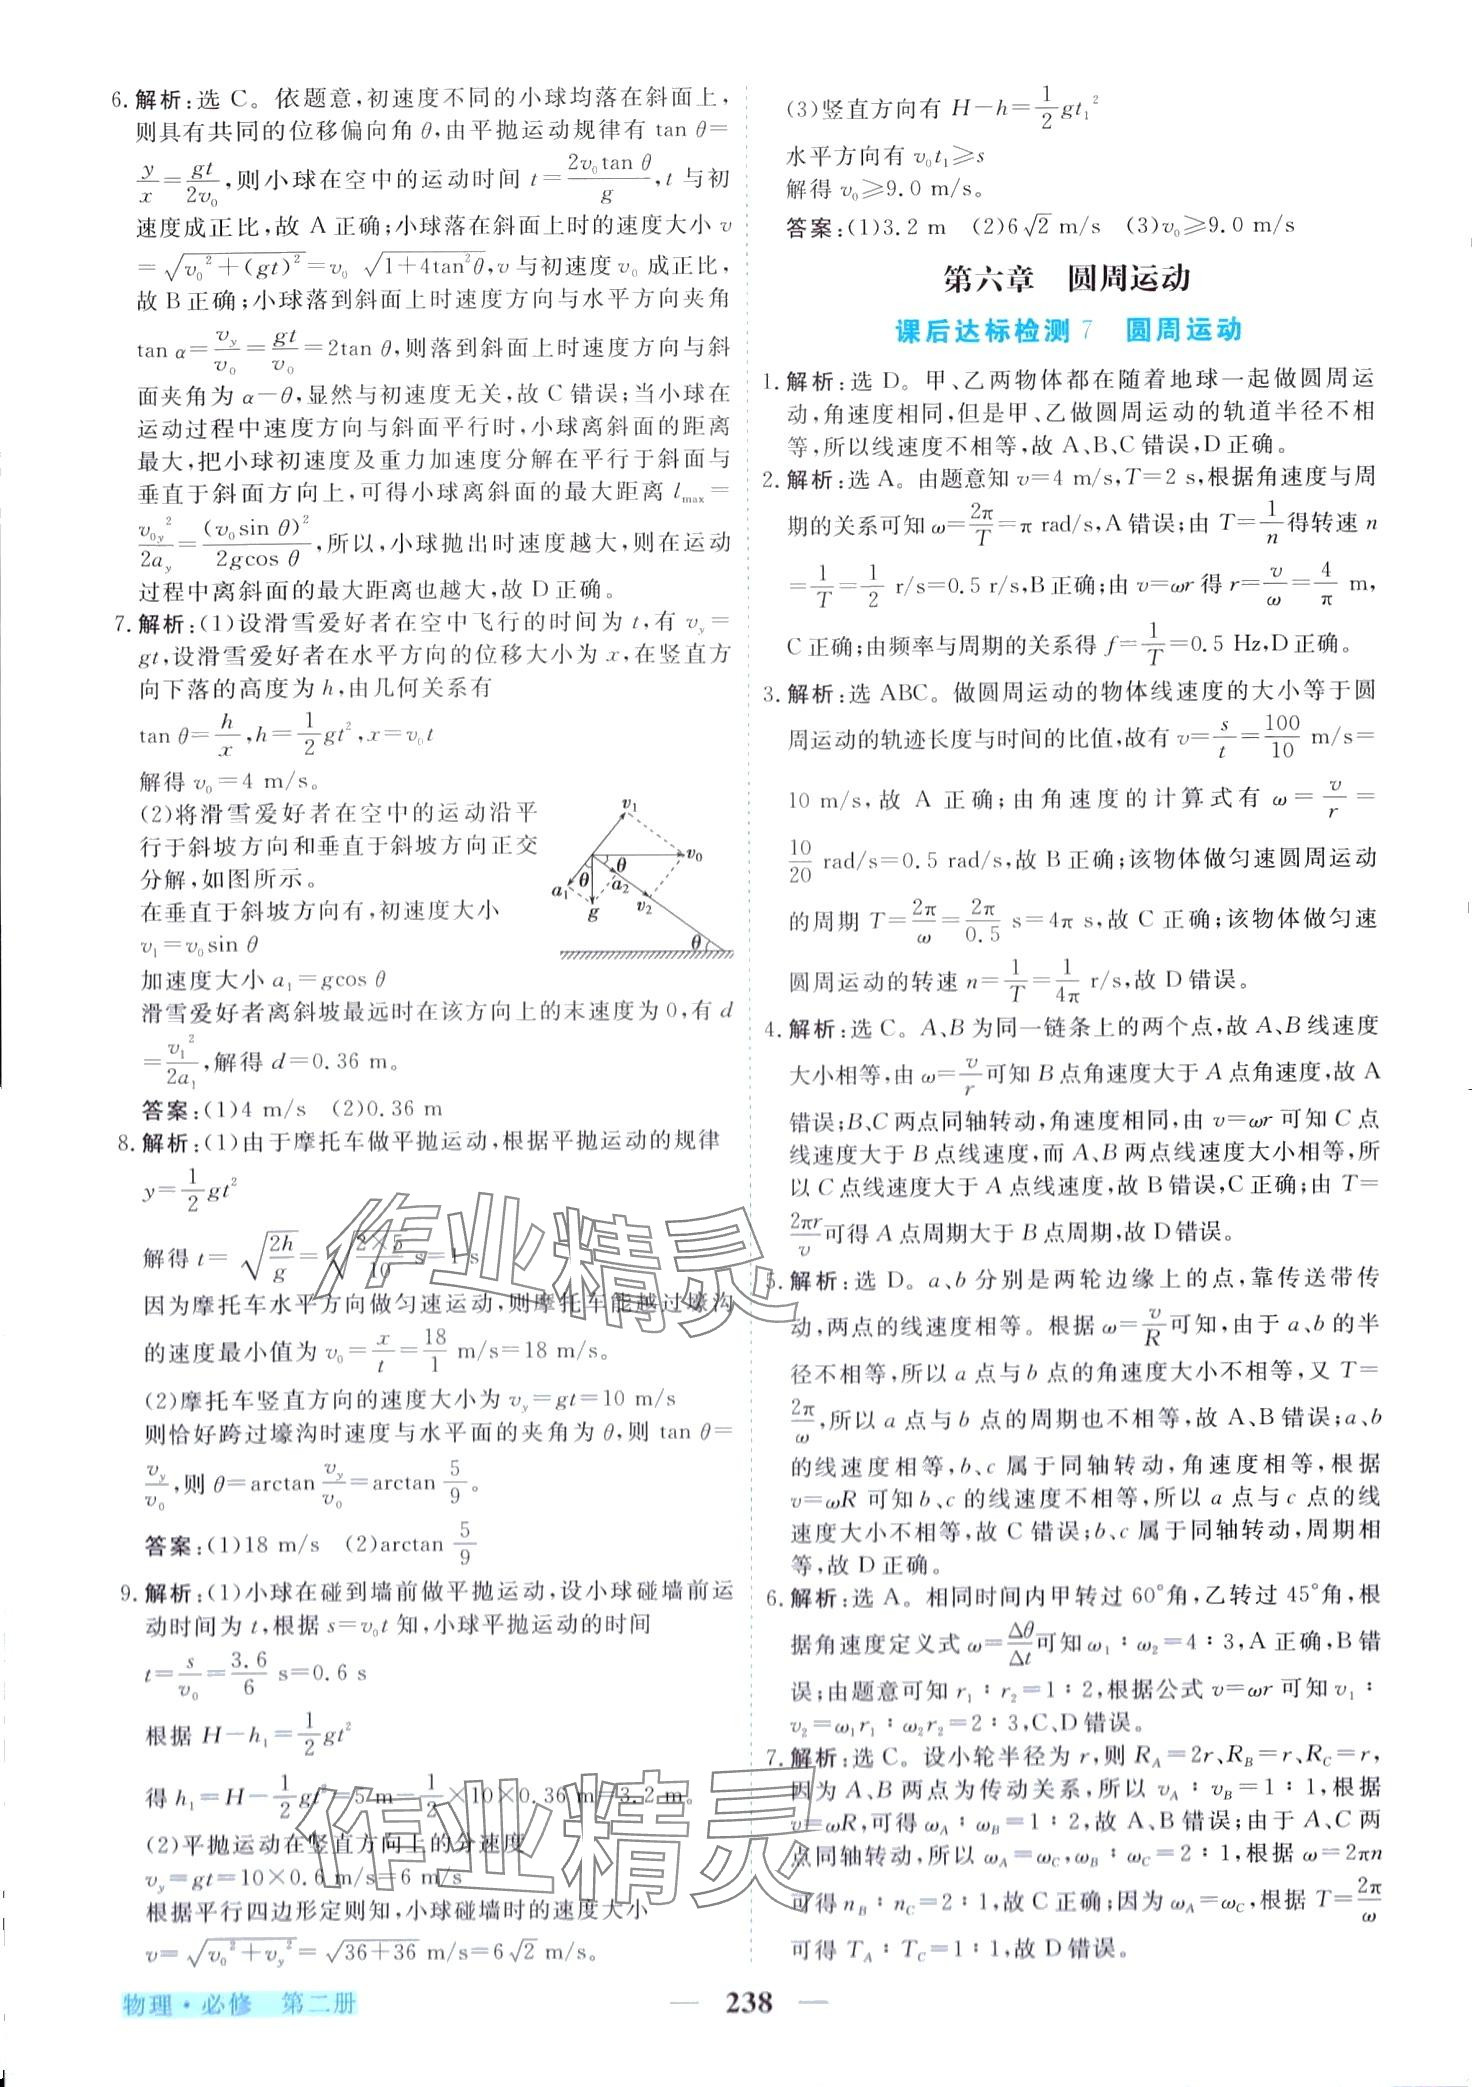 6.解析:选 C。依题意,初速度不同的小球均落在斜面上,
则具有共同的位移偏向角 θ,由平抛运动规律有 tan θ=
y/x=gt/2v₀,则小球在空中的运动时间 t=2v₀tan θ/g,t 与初
速度成正比,故 A 正确;小球落在斜面上时的速度大小 v
=√(v₀²+(gt)²)=v₀ √(1+4tan²θ),v 与初速度 v₀ 成正比,
故 B 正确;小球落到斜面上时速度方向与水平方向夹角
tan α=v_y/v₀=gt/v₀=2tan θ,则落到斜面上时速度方向与斜
面夹角为 α-θ,显然与初速度无关,故 C 错误;当小球在
运动过程中速度方向与斜面平行时,小球离斜面的距离
最大,把小球初速度及重力加速度分解在平行于斜面与
垂直于斜面方向上,可得小球离斜面的最大距离 l_max=
v₀y²/2a_y=(v₀sin θ)²/2gcos θ,所以,小球抛出时速度越大,则在运动
过程中离斜面的最大距离也越大,故 D 正确。
7.解析:(1)设滑雪爱好者在空中飞行的时间为 t,有 v_y=
gt,设滑雪爱好者在水平方向的位移大小为 x,在竖直方
向下落的高度为 h,由几何关系有
tan θ=h/x,h=1/2gt²,x=v₀t
解得 v₀=4 m/s。
(2)将滑雪爱好者在空中的运动沿平
行于斜坡方向和垂直于斜坡方向正交
分解,如图所示。
v₁
v₀
θ
θ
a₁
a₂
g
v₂
θ
在垂直于斜坡方向有,初速度大小
v₁=v₀sin θ
加速度大小 a₁=gcos θ
滑雪爱好者离斜坡最远时在该方向上的末速度为 0,有 d
=v₁²/2a₁,解得 d=0.36 m。
答案:(1)4 m/s (2)0.36 m
8.解析:(1)由于摩托车做平抛运动,根据平抛运动的规律
y=1/2gt²
解得 t=√(2h/g)=√(2×5/10) s=1 s
因为摩托车水平方向做匀速运动,则摩托车能越过壕沟
的速度最小值为 v₀=x/t=18/1 m/s=18 m/s。
(2)摩托车竖直方向的速度大小为 v_y=gt=10 m/s
则恰好跨过壕沟时速度与水平面的夹角为 θ,则 tan θ=
v_y/v₀,则 θ=arctan v_y/v₀=arctan 5/9。
答案:(1)18 m/s (2)arctan 5/9
9.解析:(1)小球在碰到墙前做平抛运动,设小球碰墙前运
动时间为 t,根据 s=v₀t 知,小球平抛运动的时间
t=s/v₀=3.6/6 s=0.6 s
根据 H-h₁=1/2gt²
得 h₁=H-1/2gt²=5 m-1/2×10×0.36 m=3.2 m。
(2)平抛运动在竖直方向上的分速度
v_y=gt=10×0.6 m/s=6 m/s
根据平行四边形定则知,小球碰墙时的速度大小
v=√(v₀²+v_y²)=√(36+36) m/s=6√2 m/s。
(3)竖直方向有 H-h=1/2gt₁²
水平方向有 v₀t₁≥s
解得 v₀≥9.0 m/s。
答案:(1)3.2 m (2)6√2 m/s (3)v₀≥9.0 m/s
第六章 圆周运动
课后达标检测 7 圆周运动
1.解析:选 D。甲、乙两物体都在随着地球一起做圆周运
动,角速度相同,但是甲、乙做圆周运动的轨道半径不相
等,所以线速度不相等,故 A、B、C 错误,D 正确。
2.解析:选 A。由题意知 v=4 m/s,T=2 s,根据角速度与周
期的关系可知 ω=2π/T=π rad/s,A 错误;由 T=1/n得转速 n
=1/T=1/2 r/s=0.5 r/s,B 正确;由 v=ωr 得 r=v/ω=4/π m,
C 正确;由频率与周期的关系得 f=1/T=0.5 Hz,D 正确。
3.解析:选 ABC。做圆周运动的物体线速度的大小等于圆
周运动的轨迹长度与时间的比值,故有 v=s/t=100/10 m/s=
10 m/s,故 A 正确;由角速度的计算式有 ω=v/r=
10/20 rad/s=0.5 rad/s,故 B 正确;该物体做匀速圆周运动
的周期 T=2π/ω=2π/0.5 s=4π s,故 C 正确;该物体做匀速
圆周运动的转速 n=1/T=1/4π r/s,故 D 错误。
4.解析:选 C。A、B 为同一链条上的两个点,故 A、B 线速度
大小相等,由 ω=v/r可知 B 点角速度大于 A 点角速度,故 A
错误;B、C 两点同轴转动,角速度相同,由 v=ωr 可知 C 点
线速度大于 B 点线速度,而 A、B 两点线速度大小相等,所
以 C 点线速度大于 A 点线速度,故 B 错误,C 正确;由 T=
2πr/v可得 A 点周期大于 B 点周期,故 D 错误。
5.解析:选 D。a、b 分别是两轮边缘上的点,靠传送带传
动,两点的线速度相等。根据 ω=v/R可知,由于 a、b 的半
径不相等,所以 a 点与 b 点的角速度大小不相等,又 T=
2π/ω,所以 a 点与 b 点的周期也不相等,故 A、B 错误;a、b
的线速度相等,b、c 属于同轴转动,角速度相等,根据
v=ωR 可知 b、c 的线速度不相等,所以 a 点与 c 点的线
速度大小不相等,故 C 错误;b、c 属于同轴转动,周期相
等,故 D 正确。
6.解析:选 A。相同时间内甲转过 60°角,乙转过 45°角,根
据角速度定义式 ω=Δθ/Δt可知 ω₁∶ω₂=4∶3,A 正确,B 错
误;由题意可知 r₁∶r₂=1∶2,根据公式 v=ωr 可知 v₁∶
v₂=ω₁r₁∶ω₂r₂=2∶3,C、D 错误。
7.解析:选 C。设小轮半径为 r,则 R_A=2r、R_B=r、R_C=r,
因为 A、B 两点为传动关系,所以 v_A∶v_B=1∶1,根据
v=ωR,可得 ω_A∶ω_B=1∶2,故 A、B 错误;由于 A、C 两
点同轴转动,所以 ω_A=ω_C,ω_B∶ω_C=2∶1,根据 ω=2πn
可得 n_B∶n_C=2∶1,故 C 正确;因为 ω_A=ω_C,根据 T=2π/ω
可得 T_A∶T_C=1∶1,故 D 错误。
作业精灵
作业精灵
物理·必修 第二册
— 238 —